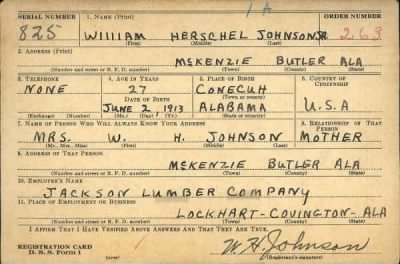 1A
SERIAL NUMBER 1. NAME (Print) ORDER NUMBER
825 WIllIAM HERSCHEL JOHNSON JR 263
(First) (Middle) (Last)
2. ADDRESS (Print)
McKENZIE BUTLER ALA
(Number and street or R. F. D. number) (Town) (County) (State)
3. TELEPHONE 4. AGE IN YEARS 5. PLACE OF BIRTH 6. COUNTRY OF CITIZENSHIP
NONE 27 CONECUH
DATE OF BIRTH (Town or county)
JUNE 2, 1913 ALABAMA U.S.A
(Exchange) (Number) (Mo.) (Day) (Yr.) (State or country)
7. NAME OF PERSON WHO WILL ALWAYS KNOW YOUR ADDRESS 8. RELATIONSHIP OF THAT PERSON
MRS. W. H. JOHNSON MOTHER
(Mr., Mrs., Miss) (First) (Middle) (Last)
9. ADDRESS OF THAT PERSON
McKENZIE BUTLER ALA
(Number and street or R. F. D. number) (Town) (County) (State)
10. EMPLOYER'S NAME
JACKSON LUMBER COMPANY
11. PLACE OF EMPLOYMENT OR BUSINESS
LOCKHART-COVINGTON-ALA
(Number and street or R. F. D. number) (Town) (County) (State)
I AFFIRM THAT I HAVE VERIFIED ABOVE ANSWERS AND THAT THEY ARE TRUE.
REGISTRATION CARD
D. S. S. Form 1 (over) W. H. Johnson
(Registrant's signature)